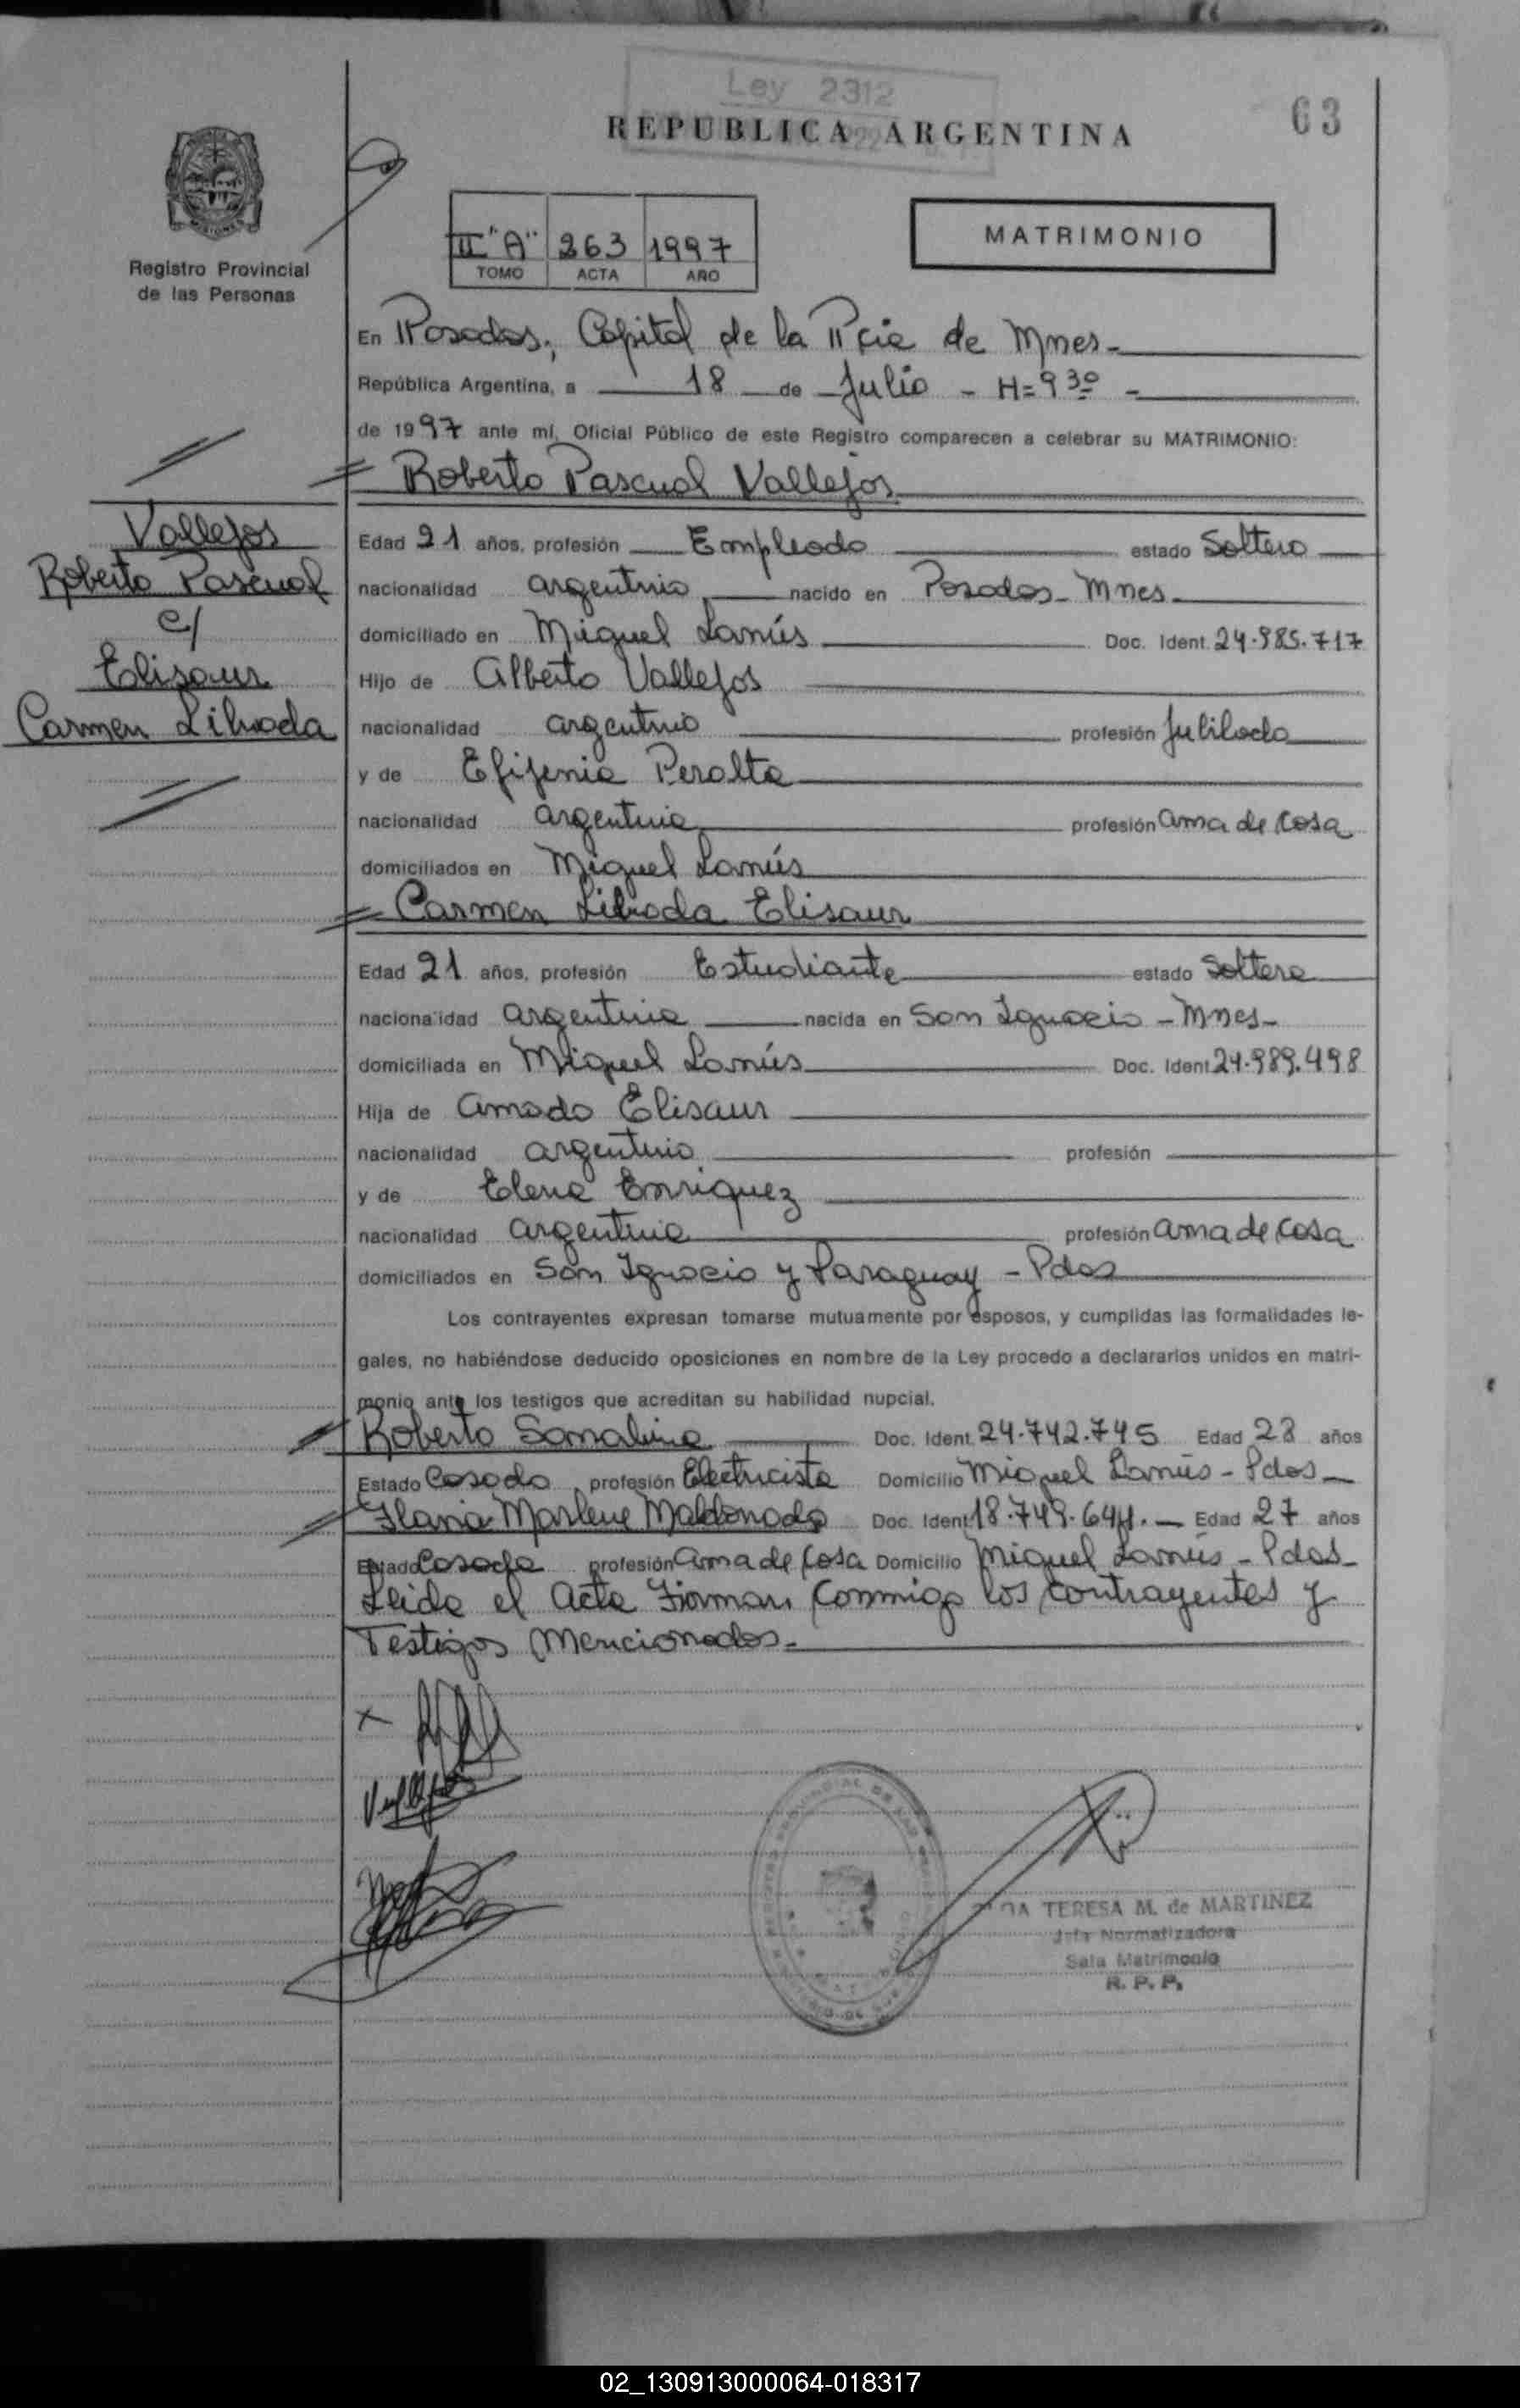 Ley 2312
REPUBLICA ARGENTINA
63
Registro Provincial
de las Personas
II "A" 263 1997
TOMO ACTA AÑO
MATRIMONIO
En Posadas, Capital de la Pcia de Mnes-
República Argentina, a 18 de Julio - H=9 30 -
de 1997 ante mí, Oficial Público de este Registro comparecen a celebrar su MATRIMONIO:
Roberto Pascual Vallejos
Vallejos
Roberto Pascual
c/
Elisaur
Carmen Librada
Edad 21 años, profesión Empleado estado Soltero
nacionalidad argentino nacido en Posadas - Mnes.
domiciliado en Miguel Lanús Doc. Ident. 24.985.717
Hijo de Alberto Vallejos
nacionalidad argentino profesión Jubilado
y de Efijenia Peralta
nacionalidad argentina profesión ama de casa
domiciliados en Miguel Lanús
Carmen Librada Elisaur
Edad 21 años, profesión Estudiante estado Soltera
nacionalidad argentina nacida en San Ignacio - Mnes-
domiciliada en Miguel Lanús Doc. Ident. 24.989.498
Hija de Amado Elisaur
nacionalidad argentino profesión
y de Elena Enriquez
nacionalidad argentina profesión ama de casa
domiciliados en San Ignacio y Paraguay - Pdas
Los contrayentes expresan tomarse mutuamente por esposos, y cumplidas las formalidades le-
gales, no habiéndose deducido oposiciones en nombre de la Ley procedo a declararlos unidos en matri-
monio ante los testigos que acreditan su habilidad nupcial.
Roberto Doc. Ident. 24.742.745 Edad 28 años
Estado Casado profesión Electricista Domicilio Miguel Lanús - Pdas
Marlene Maldonado Doc. Ident. 18.749.644. Edad 27 años
Estado Casada profesión ama de casa Domicilio Miguel Lanús - Pdas
Leida el Acta Firman Conmigo los contrayentes y
Testigos Mencionados.
TERESA M. de MARTINEZ
Jefa Normatizadora
Sala Matrimonio
R. P. P.
02_130913000064-018317